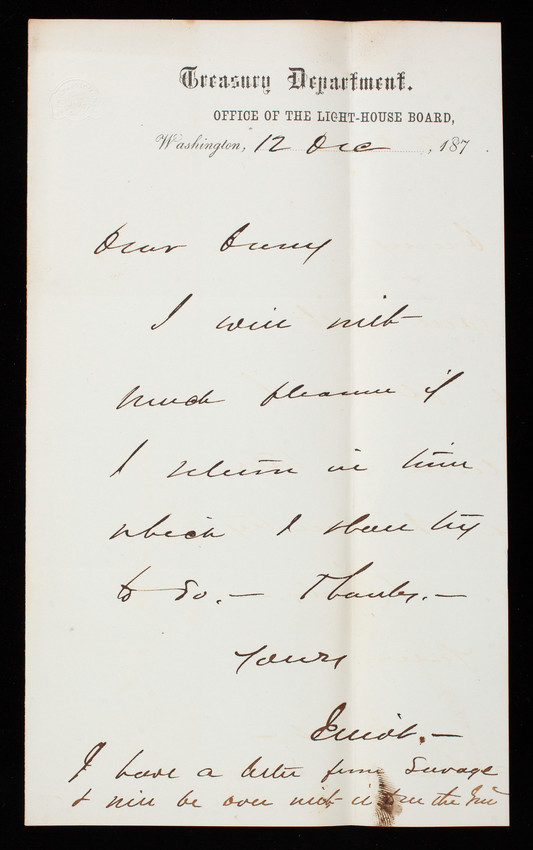 Treasury Department.
OFFICE OF THE LIGHT-HOUSE BOARD,
Washington, 12 Dec , 187 .
Dear
I will with
much pleasure if
I return in time
which I shall try
to do. — Thanks. —
Yours
I have a letter from Savage
& will be over with it on the